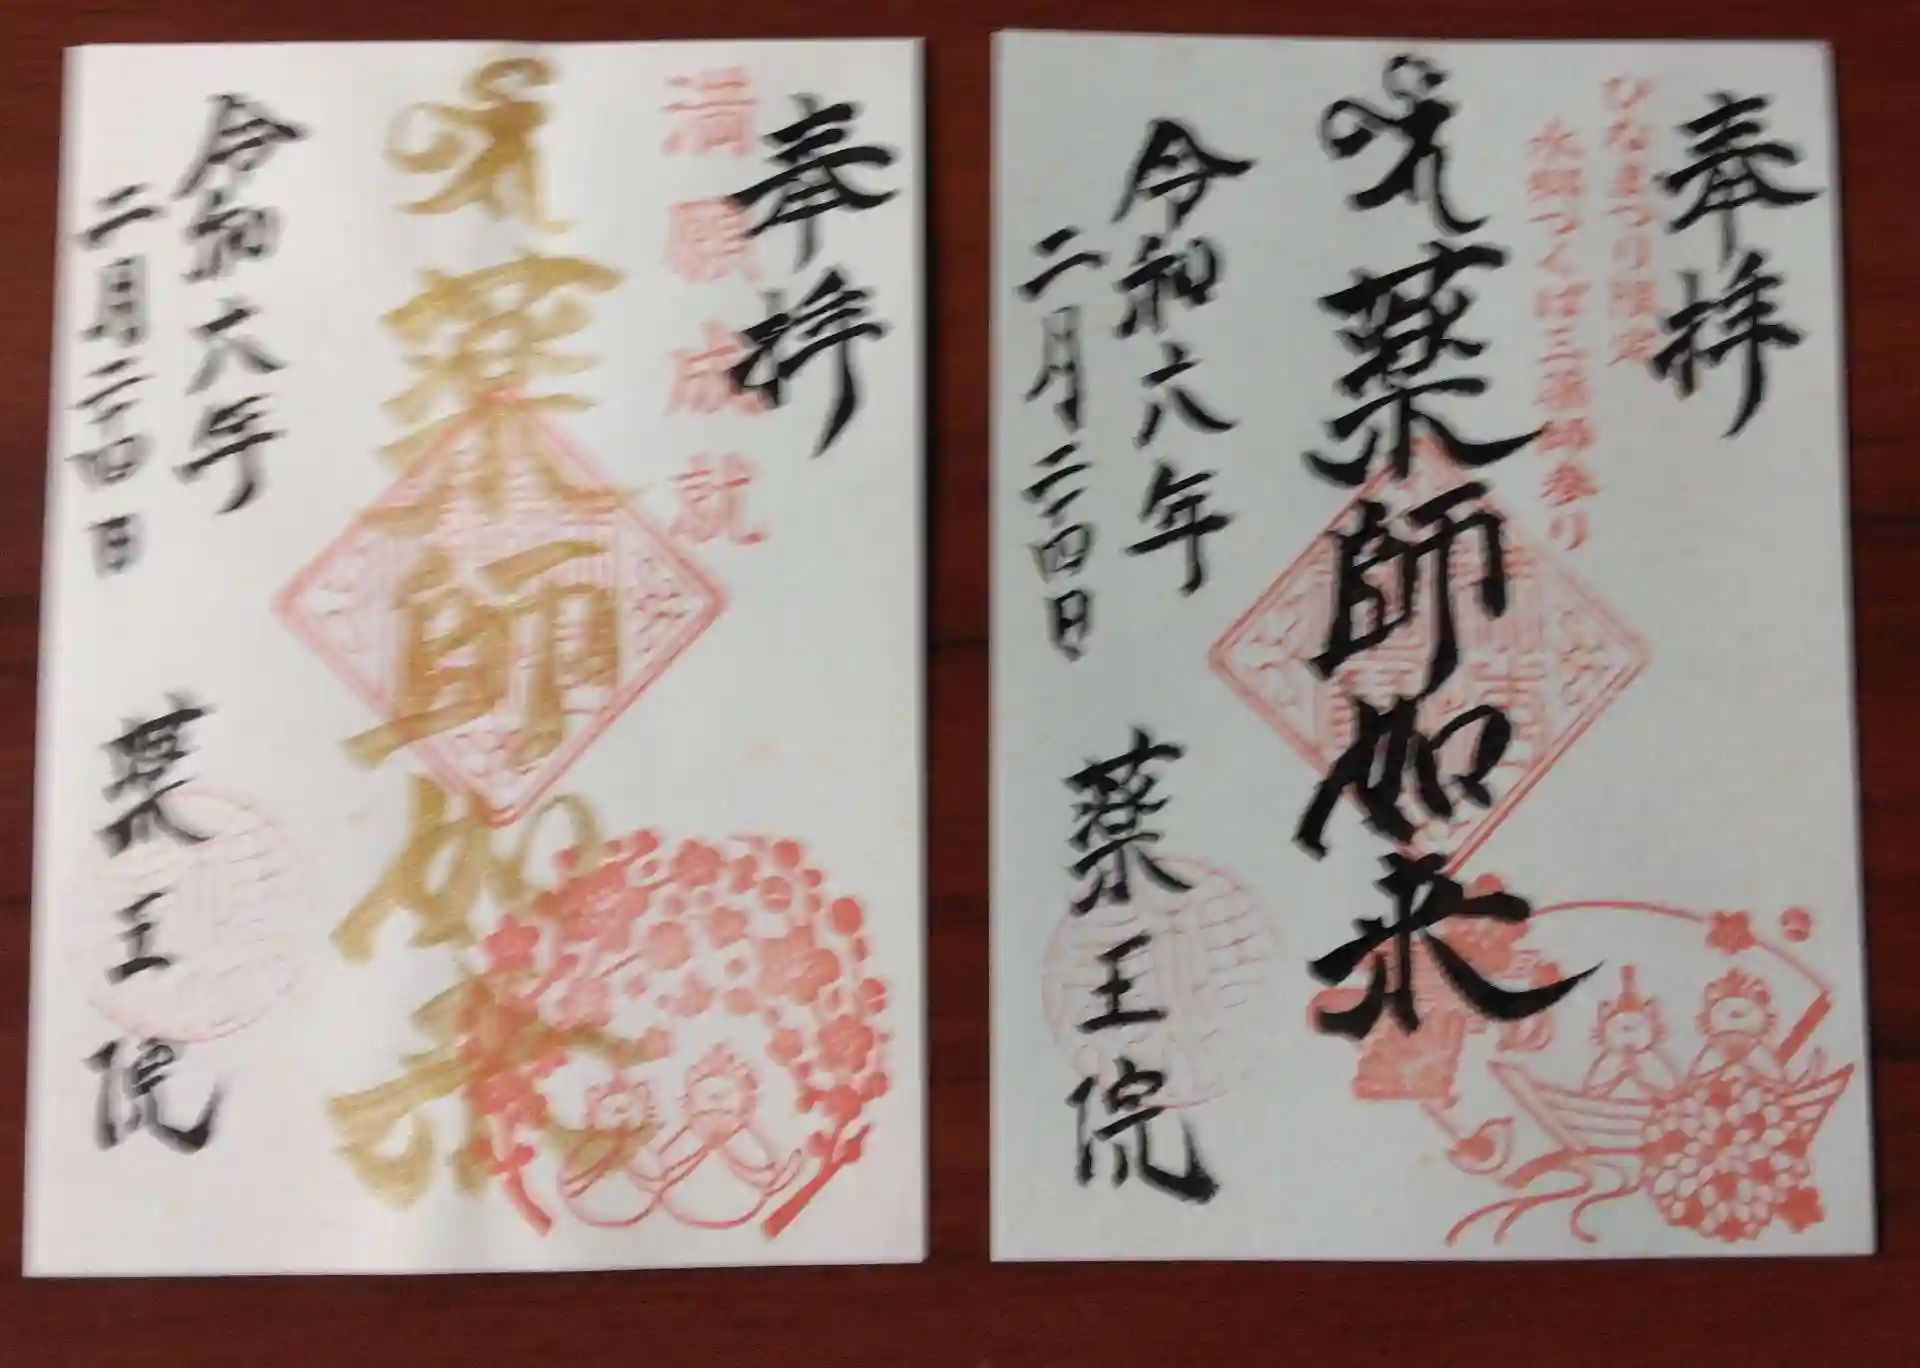 奉拝
満願成就
薬師如来
令和六年
二月二十四日
薬王院
奉拝
ひなまつり限定
水郷つくば三薬師参り
薬師如来
令和六年
二月二十四日
薬王院